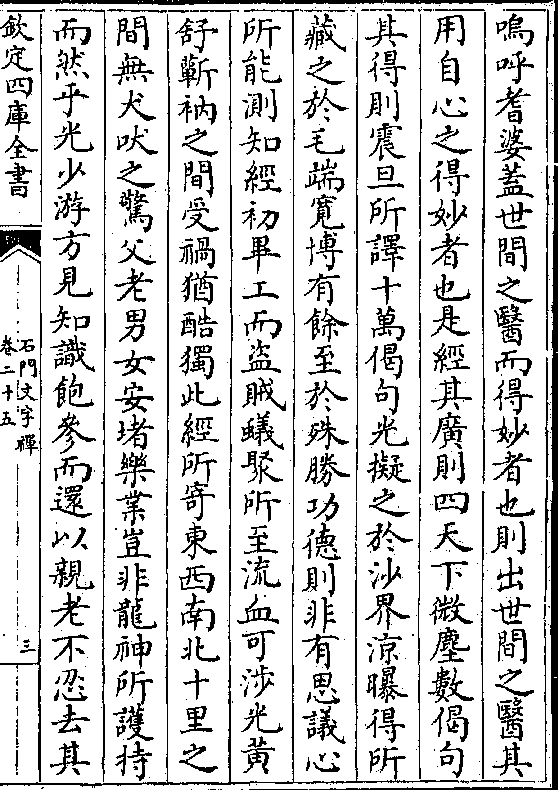 嗚呼耆婆蓋世間之醫而得妙者也則出世間之醫其
用自心之得妙者也是經其廣則四天下微塵數偈句
其得則震旦所譯十萬偈句光擬之於沙界涼曝得所
藏之於毛端寬博有餘至於殊勝功德則非有思議心
所能測知經初畢工而盜賊蟻聚所至流血可涉光黃
舒蘄衲之間受禍猶酷獨此經所寄東西南北十里之
間無犬吠之驚父老男女安堵樂業豈非龍神所護持
而然乎光少游方見知識飽參而還以親老不忍去其
欽定四庫全書
石門文字禪
卷二十五
三